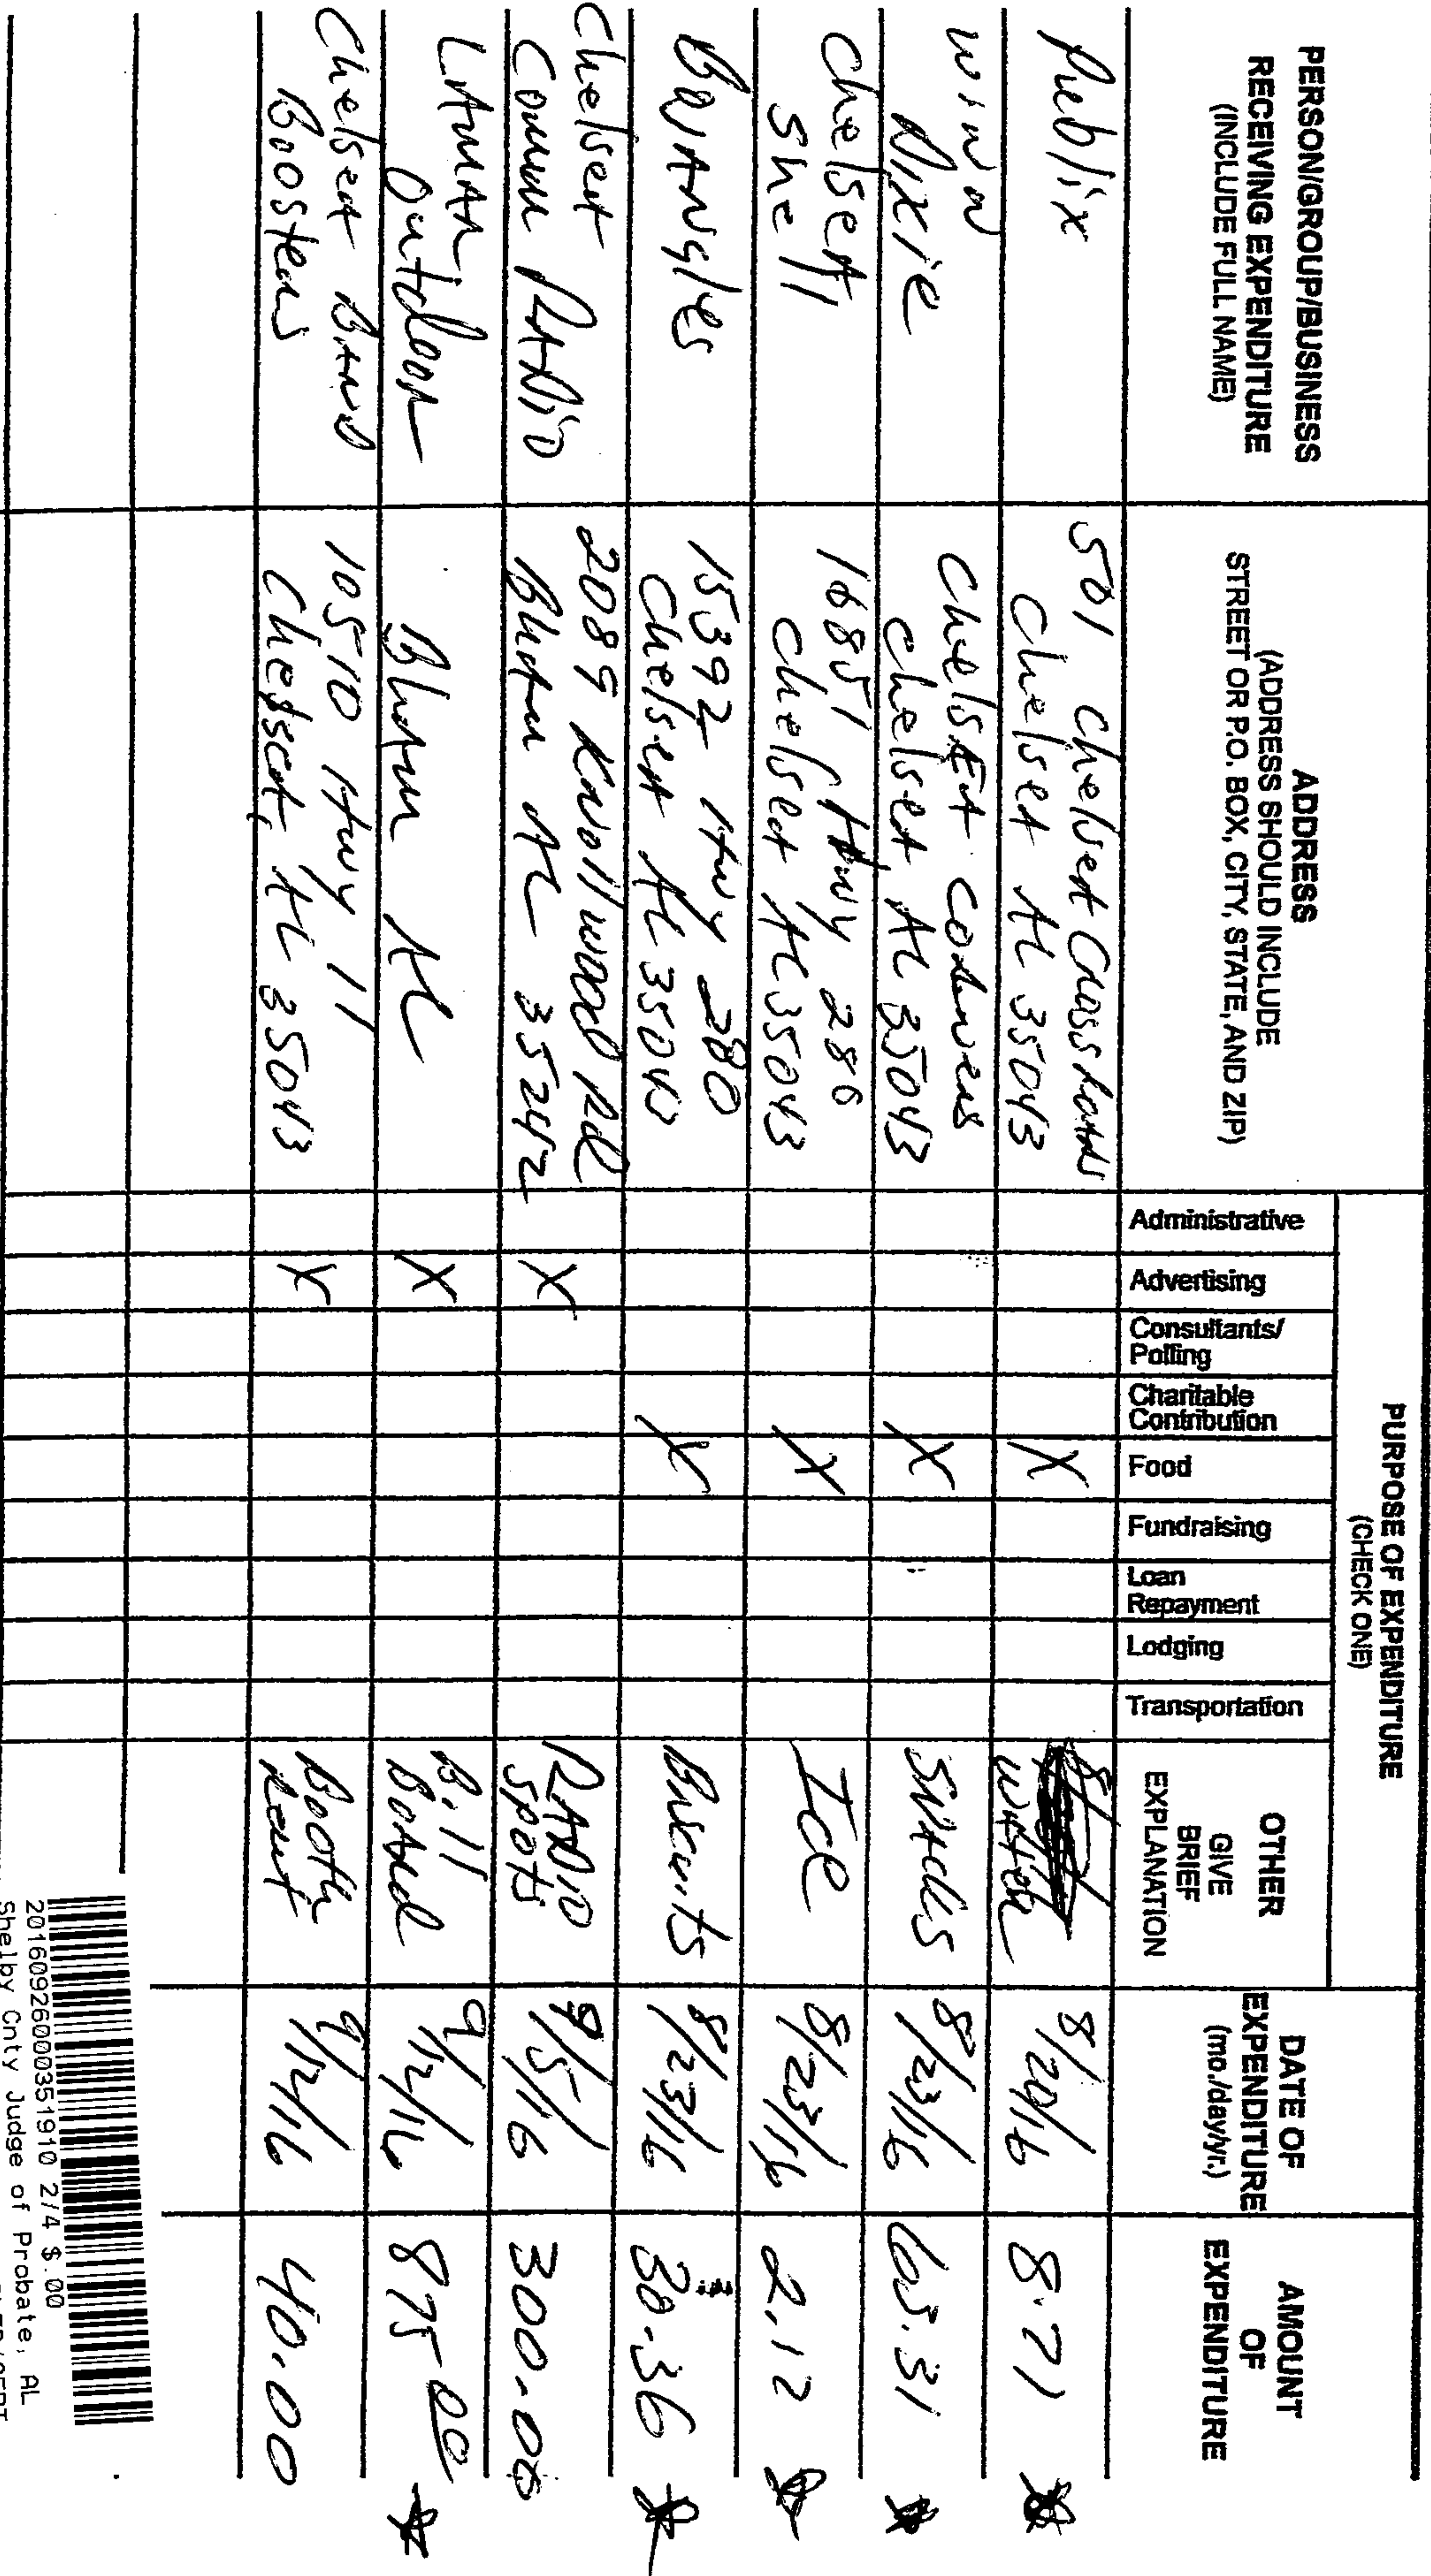 PERSON/GROUP/BUSINESS
RECEIVING EXPENDITURE
(INCLUDE FULL NAME)
ADDRESS
(ADDRESS SHOULD INCLUDE
STREET OR P.O. BOX, CITY, STATE, AND ZIP)
PURPOSE OF EXPENDITURE
(CHECK ONE)
Administrative
Advertising
Consultants/
Polling
Charitable
Contribution
Food
Fundraising
Loan
Repayment
Lodging
Transportation
OTHER
GIVE
BRIEF
EXPLANATION
DATE OF
EXPENDITURE
(mo./day/yr.)
AMOUNT
OF
EXPENDITURE
Publix
501 Chelsea CrossRoads
Chelsea AL 35043
X
WATER
8/20/16
8.71
WINN
DIXIE
Chelsea Corners
Chelsea, AL 35043
X
SNACKS
8/23/16
65.31
Chelsea
Shell
16851 Hwy 280
Chelsea AL 35043
X
Ice
8/23/16
2.12
BoJANgles
15392 Hwy 280
Chelsea AL 35043
X
Biscuits
8/23/16
30.36
Chelsea
Comm RADIO
2089 Knollwood Rd
Bham AL 35242
X
RADIO
spots
9/5/16
300.00
LAMAR
Outdoor
Bham AL
X
Bill
Board
9/12/16
875.00
Chelsea BAND
Boosters
10510 Hwy 11
Chelsea, AL 35043
X
Booth
Rent
9/12/16
40.00
20160926000351910 2/4 $.00
Shelby Cnty Judge of Probate, AL